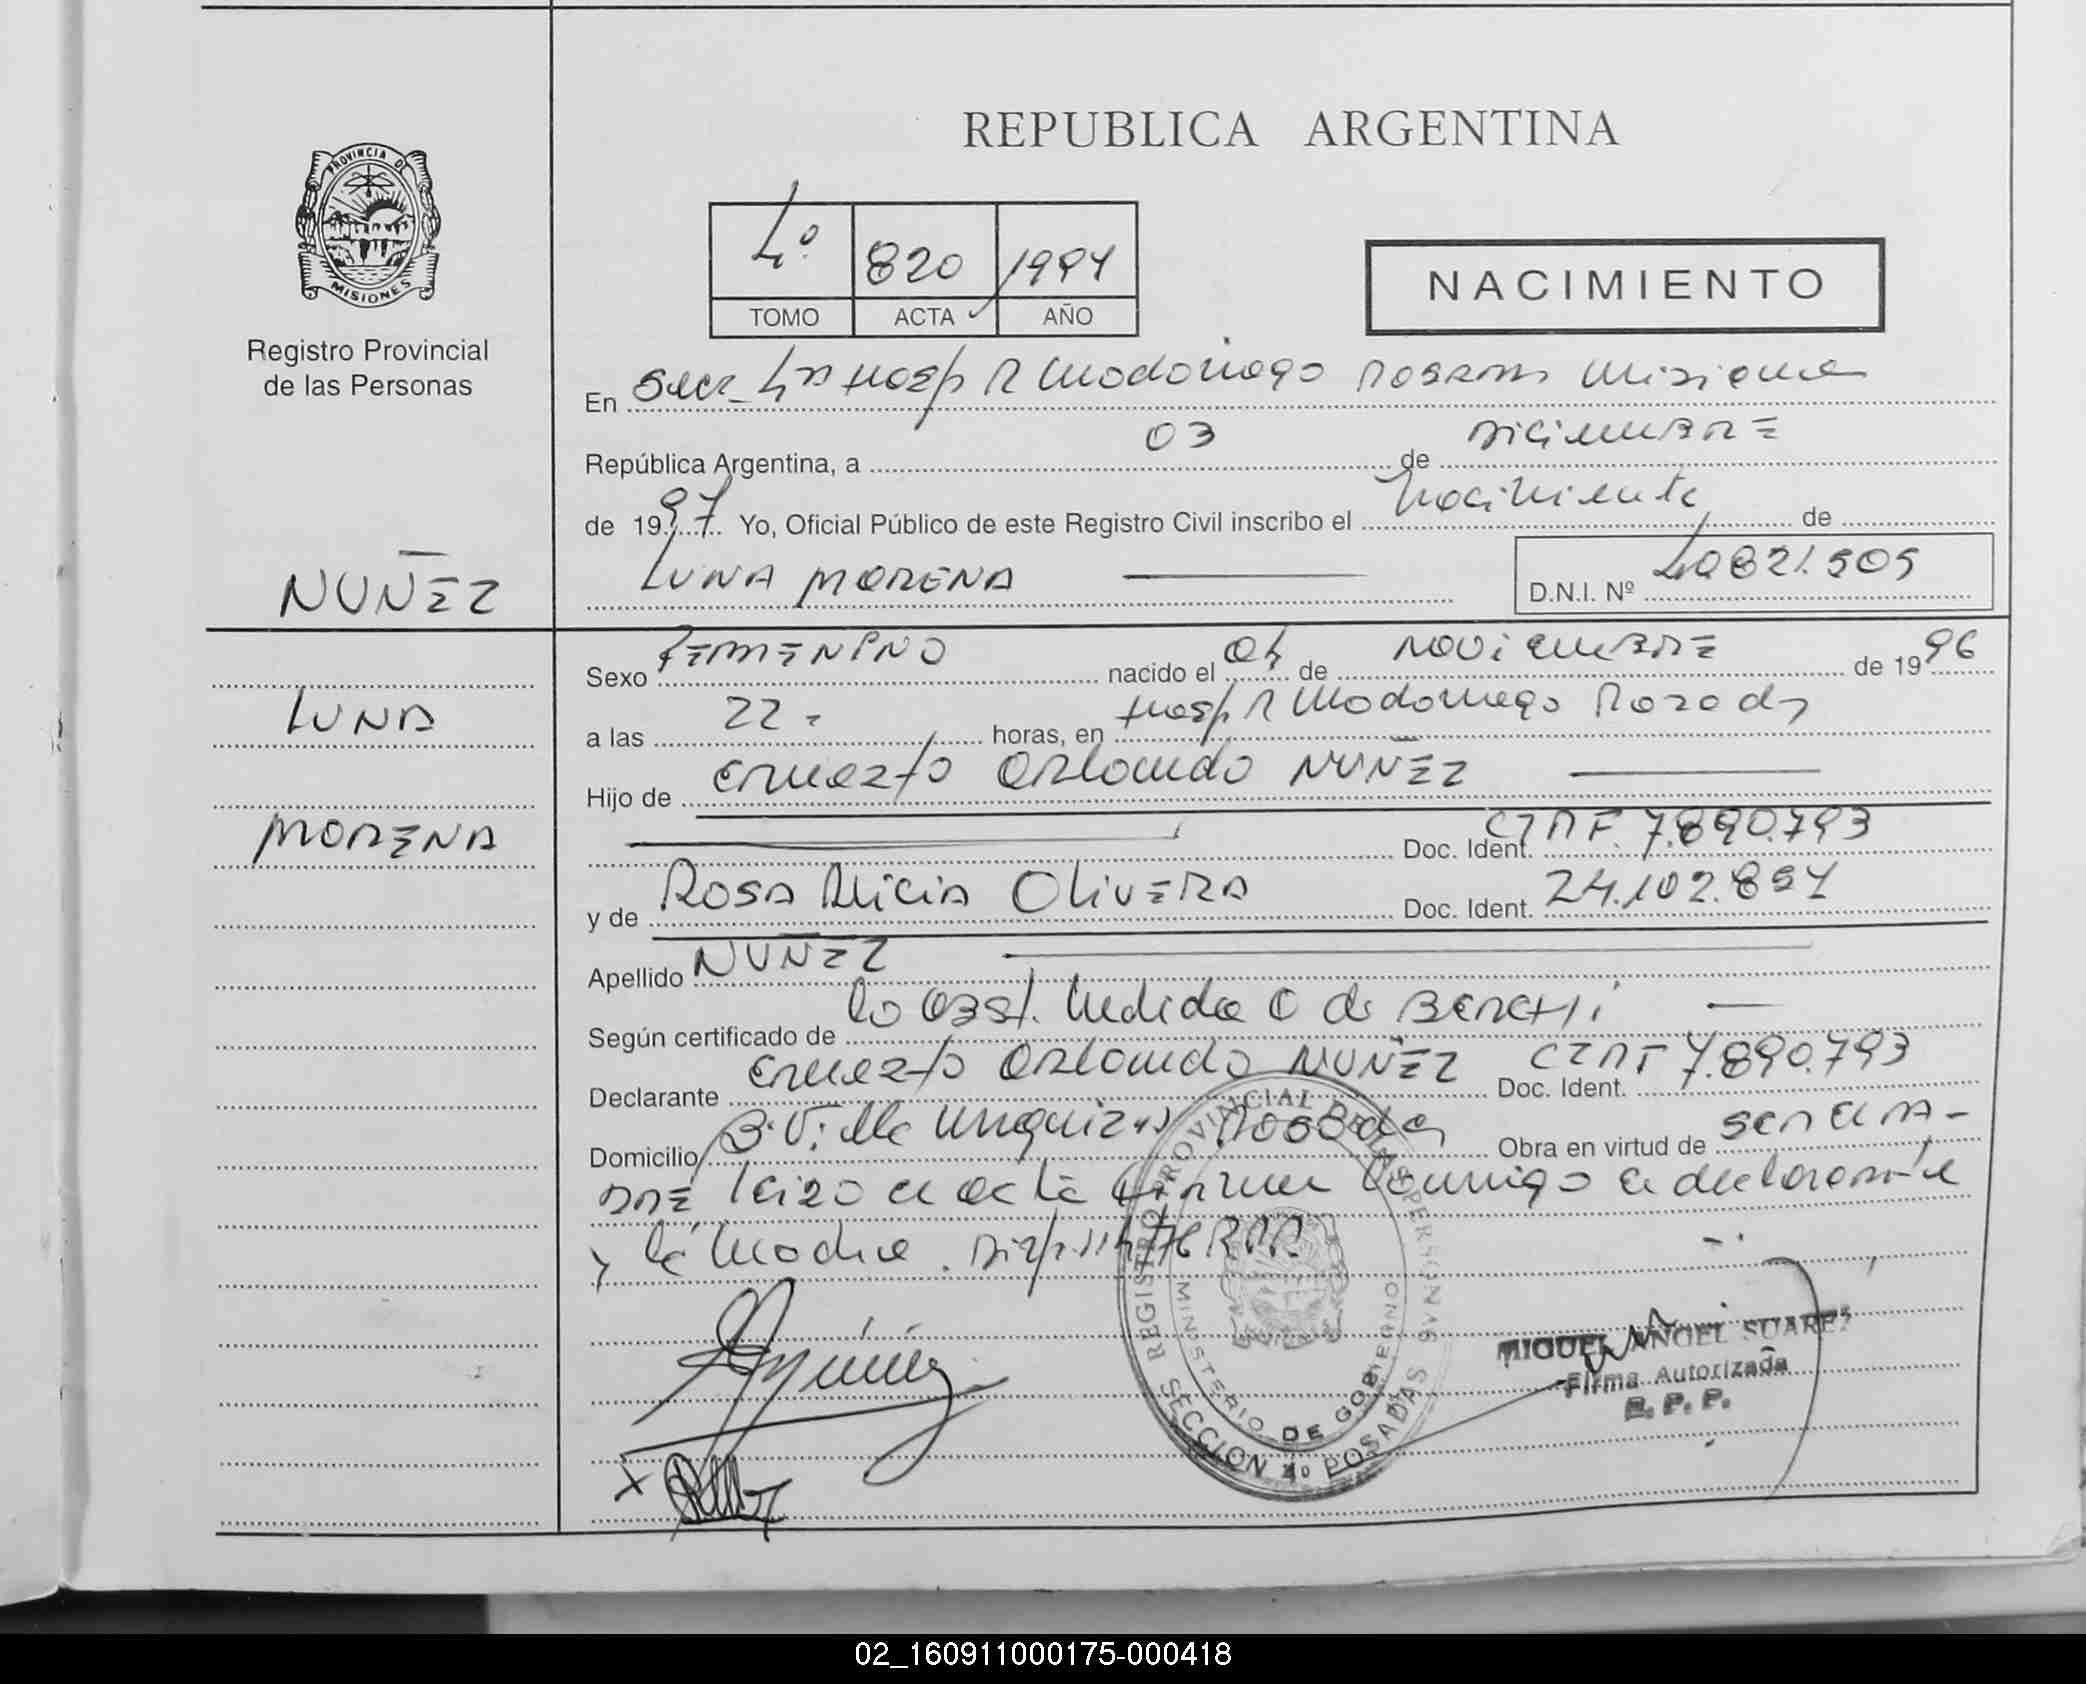 REPUBLICA ARGENTINA
PROVINCIA DE
MISIONES
Registro Provincial
de las Personas
4º 820 1997
TOMO ACTA AÑO
NACIMIENTO
En Secc 4ta Hosp R Madariaga Posadas Misiones
República Argentina, a 03 de diciembre
de 1997 Yo, Oficial Público de este Registro Civil inscribo el nacimiento de
LUNA MORENA D.N.I. Nº 40821.505
NUÑEZ
LUNA
MORENA
Sexo FEMENINO nacido el 04 de NOVIEMBRE de 1996
a las 22 horas, en Hosp R Madariaga Posadas
Hijo de Ernesto Orlando NUÑEZ
Doc. Ident. 7.890.793
y de ROSA Alicia OliVERA Doc. Ident. 24.102.854
Apellido NUÑEZ
Según certificado de la Obst. Medida C de
Declarante Ernesto Orlando NUÑEZ Doc. Ident. 7.890.793
Domicilio B. Villa Urquiza Posadas Obra en virtud de
el acta firman conmigo el declarante
y la madre.
REGISTRO PROVINCIAL DE LAS PERSONAS
MINISTERIO DE GOBIERNO
SECCION 4º POSADAS
MIGUEL ANGEL SUAREZ
Firma Autorizada
R. P. P.
02_160911000175-000418